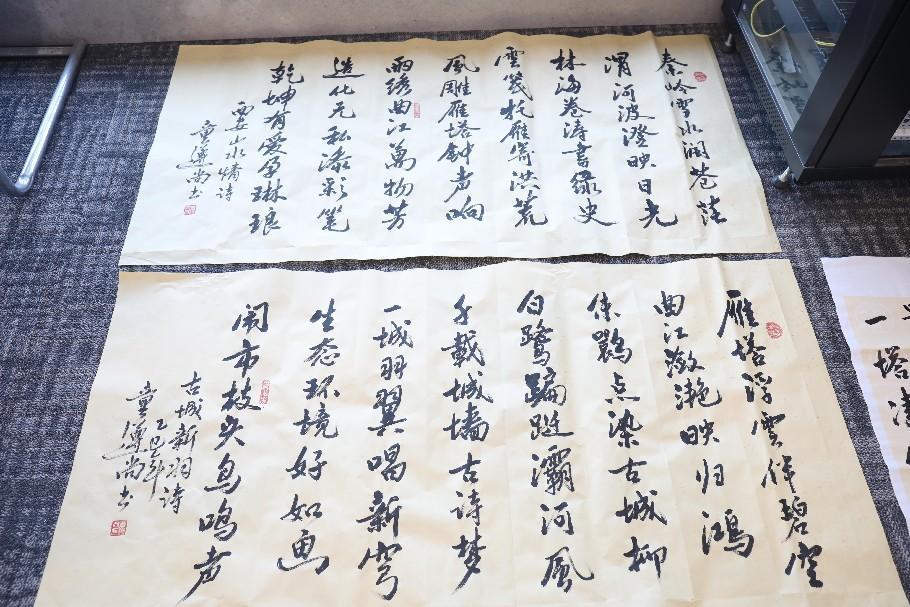 秦岭雪水润苍茫
渭河波澄映日光
林海卷涛书绿史
雲笺托雁寄洪荒
風雕雁塔钟声响
雨绣曲江萬物芳
造化无私添彩笔
乾坤有爱孕琳琅
西安山水情诗
童遵尚书
雁塔浮雲伴碧空
曲江潋滟映归鸿
朱鹮点染古城柳
白鹭蹁跹灞河風
千載城墙古诗梦
一城羽翼唱新穹
生态环境好如画
闹市枝头鸟鸣声
古城新羽诗
乙巳年
童遵尚书
一塔